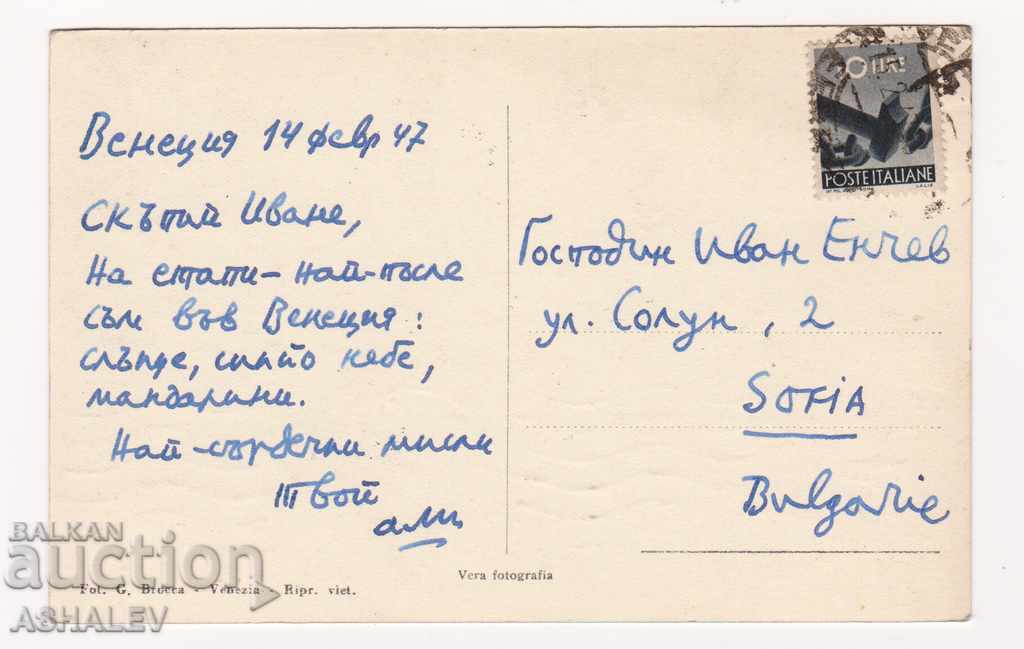 Венеция 14 февр 47
Скъпи Иване,
На етапи - най-после
съм във Венеция:
слънце, синьо небе,
мандарини.
Най-сърдечни мисли
Твой
Господин Иван Енчев
ул. Солун, 2
SOFIA
Bulgarie
LIRE
POSTE ITALIANE
Vera fotografia
Fot. G. Brocca - Venezia - Ripr. viet.
BALKAN
auction
ASHALEV